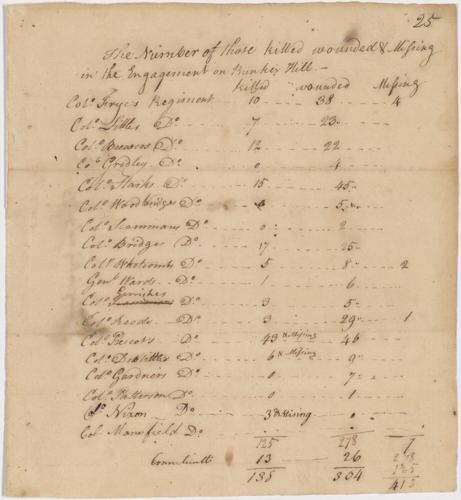 25
The Number of those killed wounded & Missing
in the Engagement on Bunker Hill. —
Killed wounded Missing
Colo. Fryes Regiment 10 38 4
Colo. Littles Do. 7 23
Colo. Brewers Do. 12 22
Colo. Gridley Do. 0 4
Colo. Starks Do. 15 45
Colo. Woodbridges Do. 5
Colo. Scammans Do. 0 2
Colo. Bridges Do. 17 25
Colo. Whetcombs Do. 5 8 2
Genl. Wards Do. 1 6
Gerrishes
Colo. Do. 3 5
Colo. Reeds Do. 3 29 1
Colo. Prescots Do. 43 & Missing 46
Colo. Doolittles Do. 6 & Missing 9
Colo. Gardners Do. 0 7
Colo. Patterson Do. 0 1
Colo. Nixon Do. 3 & Missing 0
Col. Mansfield Do.
125 278 7
Connecticutt 13 26 278
138 304 135
415